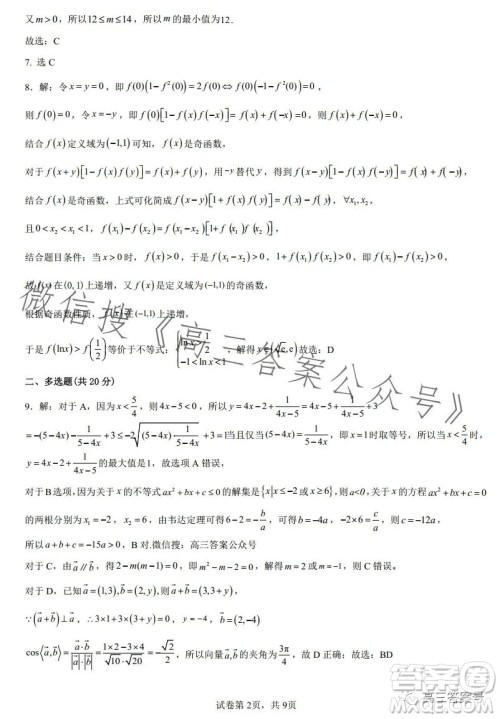 又 m>0，所以12≤m≤14，所以 m 的最小值为12.
故选：C
7. 选C
8. 解：令 x=y=0，即 f(0)(1-f²(0))=2f(0)⇔f(0)(-1-f²(0))=0，
则 f(0)=0，令 x=-y，即 f(0)[1-f(x)f(-x)]=f(x)+f(-x)=0，
结合 f(x)定义域为(-1,1)可知，f(x)是奇函数，
对于 f(x+y)[1-f(x)f(y)]=f(x)+f(y)，用-y替代 y，得到 f(x-y)[1-f(x)f(-y)]=f(x)+f(-y)，
结合 f(x)是奇函数，上式可化简成 f(x-y)[1+f(x)f(y)]=f(x)-f(y)，∀x₁,x₂，
且0<x₂<x₁<1，f(x₁)-f(x₂)=f(x₁-x₂)[1+f(x₁)f(x₂)]，
结合题目条件：当 x>0时，f(x)>0，于是 f(x₁-x₂)>0，1+f(x₁)f(x₂)>0，f(x₁)-f(x₂)>0，
故 f(x)在(0,1)上递增，又 f(x)是定义域为(-1,1)的奇函数，
根据奇函数性质，f(x)在(-1,1)上递增，
于是 f(lnx)>f(1/2)等价于不等式：{lnx>1/2 -1<lnx<1，解得 x∈(√e,e)故选：D
二、多选题(共20分)
9. 解：对于A，因为 x<5/4，所以4x-5<0，所以 y=4x-2+1/(4x-5)=4x-5+1/(4x-5)+3
=-(5-4x)-1/(5-4x)+3≤-2√((5-4x)·1/(5-4x))+3=1当且仅当5-4x=1/(5-4x)，即 x=1时取等号，所以当 x<5/4时，
y=4x-2+1/(4x-5)的最大值是1，故选项A错误，
对于B选项,因为关于 x 的不等式 ax²+bx+c≤0的解集是{x|x≤-2或x≥6}，则关于 x 的方程 ax²+bx+c=0
的两根分别为 x₁=-2，x₂=6，由韦达定理可得6-2=-b/a，可得b=-4a，-2×6=c/a，c=-12a，
所以 a+b+c=-15a>0，B对.微信搜：高三答案公众号
对于C，由a∥b，得2-m(m-1)=0，即m²-m-2=0，解得m=-1或m=2，故C错误；
对于D，已知a=(1,3),b=(2,y)，则a+b=(3,3+y)，
∵(a+b)⊥a，∴3×1+3×(3+y)=0，y=-4，∴b=(2,-4)
cos⟨a,b⟩=a·b/|a|·|b|=(1×2-3×4)/(√10·√20)=-√2/2，所以向量a,b的夹角为3π/4，故D正确；故选：BD
试卷第2页，共9页
微信搜《高三答案公众号》
高三答案号